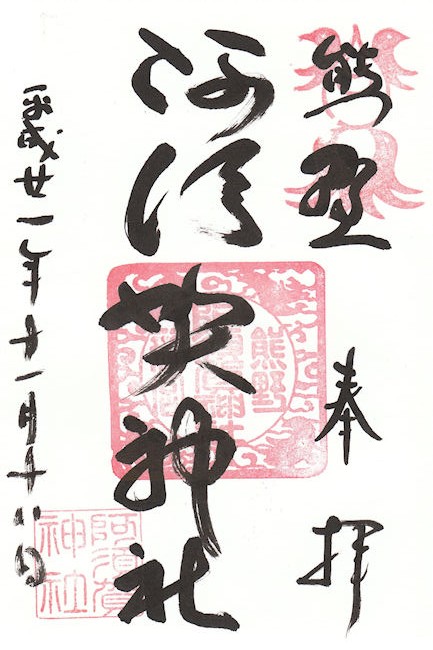 熊野
奉拝
阿須賀神社
平成廿一年十一月十六日
熊野
阿須賀
神社